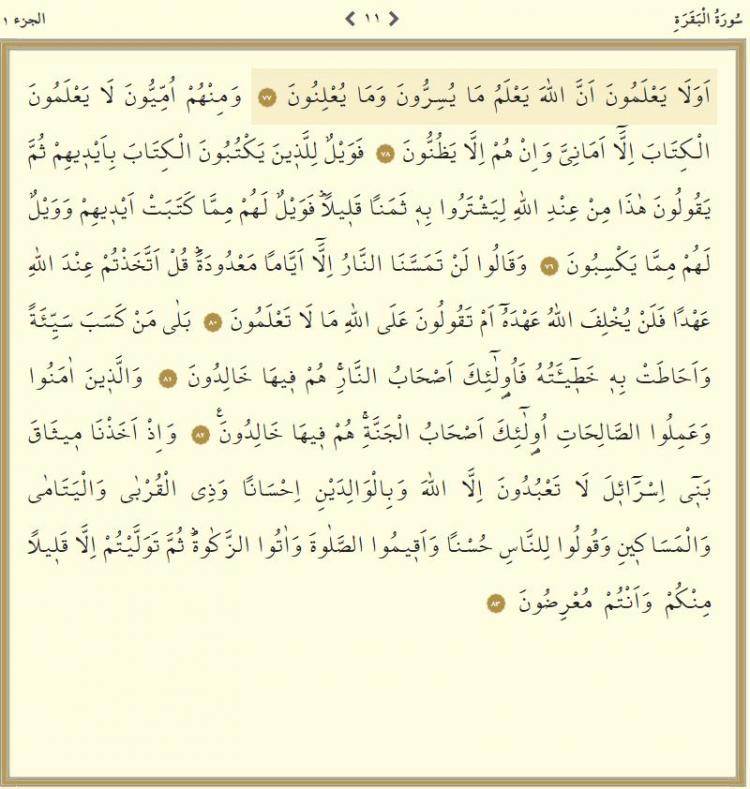 سُورَةُ الْبَقَرَةِ ١١ الجزء ١
اَوَلَا يَعْلَمُونَ اَنَّ اللّٰهَ يَعْلَمُ مَا يُسِرُّونَ وَمَا يُعْلِنُونَ ٧٧ وَمِنْهُمْ اُمِّيُّونَ لَا يَعْلَمُونَ
الْكِتَابَ اِلَّٓا اَمَانِيَّ وَاِنْ هُمْ اِلَّا يَظُنُّونَ ٧٨ فَوَيْلٌ لِلَّذٖينَ يَكْتُبُونَ الْكِتَابَ بِاَيْدٖيهِمْ ثُمَّ
يَقُولُونَ هٰذَا مِنْ عِنْدِ اللّٰهِ لِيَشْتَرُوا بِهٖ ثَمَنًا قَلٖيلًاؕ فَوَيْلٌ لَهُمْ مِمَّا كَتَبَتْ اَيْدٖيهِمْ وَوَيْلٌ
لَهُمْ مِمَّا يَكْسِبُونَ ٧٩ وَقَالُوا لَنْ تَمَسَّنَا النَّارُ اِلَّٓا اَيَّامًا مَعْدُودَةًؕ قُلْ اَتَّخَذْتُمْ عِنْدَ اللّٰهِ
عَهْدًا فَلَنْ يُخْلِفَ اللّٰهُ عَهْدَهُٓ اَمْ تَقُولُونَ عَلَى اللّٰهِ مَا لَا تَعْلَمُونَ ٨٠ بَلٰى مَنْ كَسَبَ سَيِّئَةً
وَاَحَاطَتْ بِهٖ خَطٖٓيئَتُهُ فَاُو۬لٰٓئِكَ اَصْحَابُ النَّارِۚ هُمْ فٖيهَا خَالِدُونَ ٨١ وَالَّذٖينَ اٰمَنُوا
وَعَمِلُوا الصَّالِحَاتِ اُو۬لٰٓئِكَ اَصْحَابُ الْجَنَّةِۚ هُمْ فٖيهَا خَالِدُونَࣖ ٨٢ وَاِذْ اَخَذْنَا مٖيثَاقَ
بَنٖٓي اِسْرَٓائٖلَ لَا تَعْبُدُونَ اِلَّا اللّٰهَ وَبِالْوَالِدَيْنِ اِحْسَانًا وَذِي الْقُرْبٰى وَالْيَتَامٰى
وَالْمَسَاكٖينِ وَقُولُوا لِلنَّاسِ حُسْنًا وَاَقٖيمُوا الصَّلٰوةَ وَاٰتُوا الزَّكٰوةَؕ ثُمَّ تَوَلَّيْتُمْ اِلَّا قَلٖيلًا
مِنْكُمْ وَاَنْتُمْ مُعْرِضُونَ ٨٣